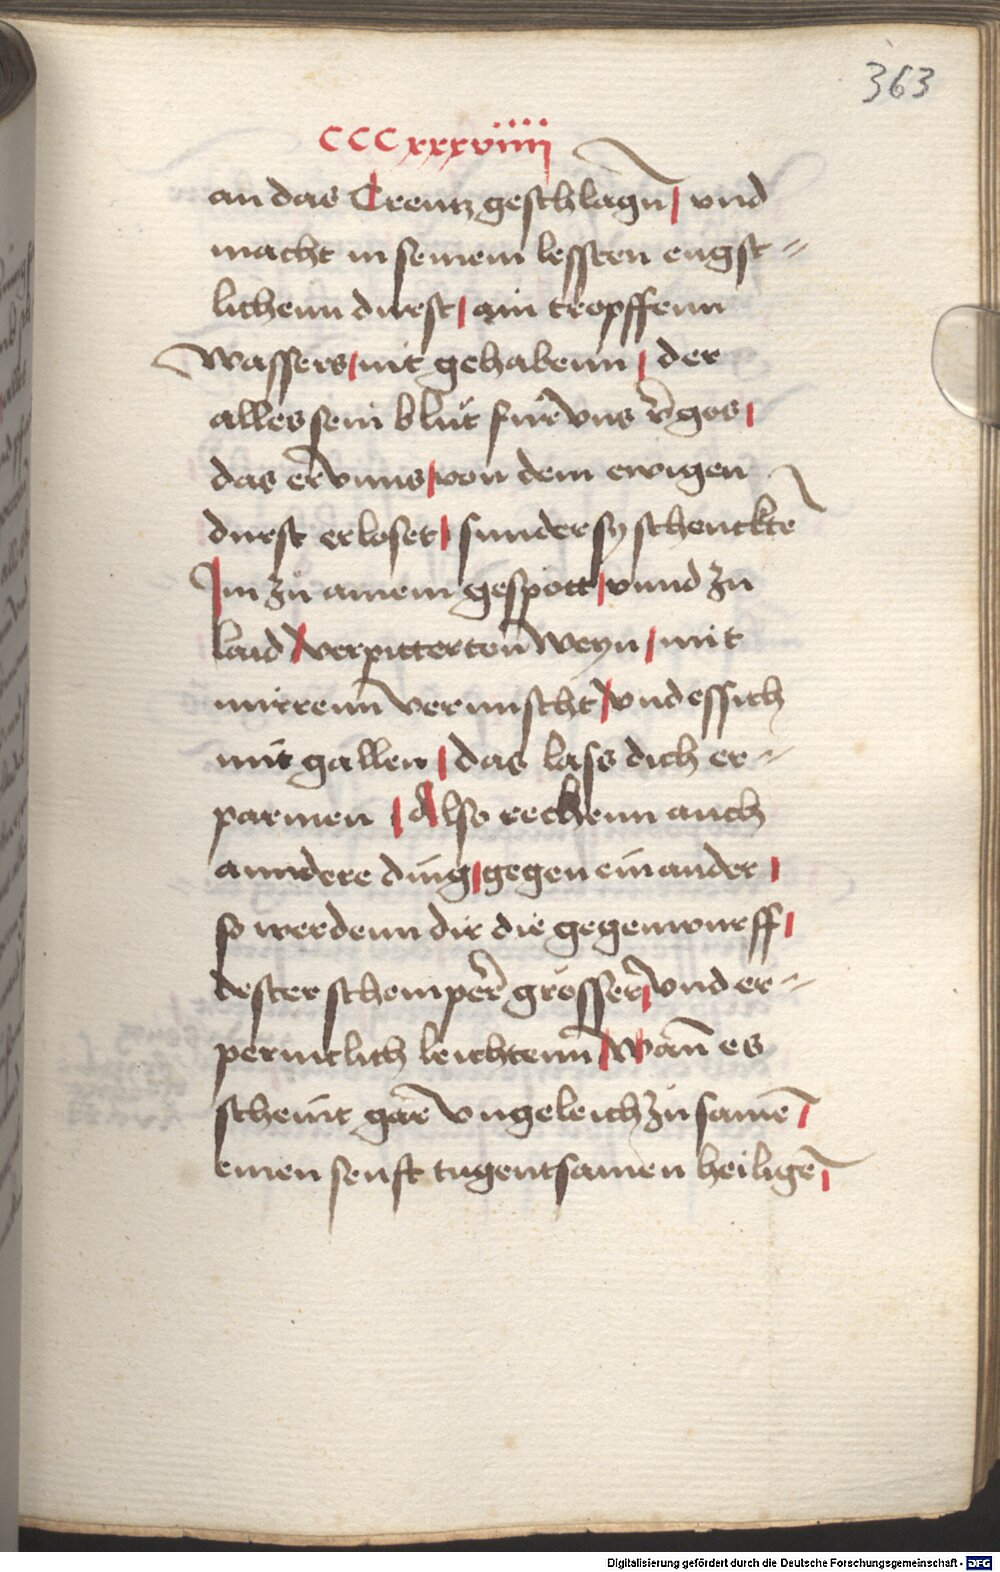 363
CCCxxxviiij
an das Creutz geschlagn̄ / vnd
macht in seinem lessten engst=
lichenn durst / ain tropffenn
wassers / nit gehabenn / der
alles sein blůt für vns v̄gos /
das er vnns / von dem ewigen
durst erloset / sunder sy schencktē
Im zů ainem gespött / vnnd zu
laid / verpittertenn weyn / mit
mirrenn vermischt / vnd essich
mit gallen / das lass dich er=
parmen / Also rechenn auch
anndere ding / gegen einander /
so werdenn dir die gegenwurff /
dester schempēr grösser / vnd er=
permclich leichtenn / Wan̄ es
scheint gar vngeleich zů samē /
einen senft tugentsamen heiligē /
Digitalisierung gefördert durch die Deutsche Forschungsgemeinschaft - DFG